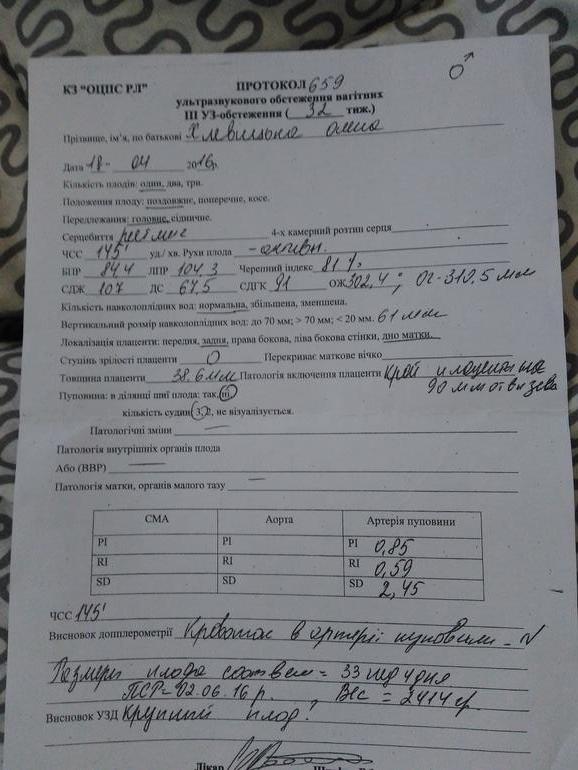 ♂
КЗ "ОЦПС РЛ" ПРОТОКОЛ 659
ультразвукового обстеження вагітних
ІІІ УЗ-обстеження ( 32 тиж.)
Прізвище, ім'я, по батькові Олена
Дата 18- 04 2016р.
Кількість плодів: один, два, три.
Положення плоду: поздовжнє, поперечне, косе.
Передлежання: головне, сідничне.
Серцебиття ритмічне 4-х камерний розтин серця
ЧСС 145' уд./ хв. Рухи плода - активн.
БПР 84,4 ЛПР 104,3 Черепний індекс 81%
СДЖ 107 ДС 67,5 СДГК 91 ОЖ 302,4; ОГ-310,5 мм
Кількість навколоплідних вод: нормальна, збільшена, зменшена.
Вертикальний розмір навколоплідних вод: до 70 мм; > 70 мм; < 20 мм. 61 мм
Локалізація плаценти: передня, задня, права бокова, ліва бокова стінки, дно матки.
Ступінь зрілості плаценти 0 Перекриває маткове вічко
Товщина плаценти 38.6мм Патологія включення плаценти край плаценти на
90 мм от в. зева
Пуповина: в ділянці шиї плода: так, ні
кількість судин 3, 2, не візуалізується.
Патологічні зміни
Патологія внутрішніх органів плода
Або (ВВР)
Патологія матки, органів малого тазу
СМА Аорта Артерія пуповини
PI PI PI 0,85
RI RI RI 0,59
SD SD SD 2,45
ЧСС 145'
Висновок допплерометрії Кровоток в артерії пуповини - N
Размеры плода соответ = 33 нед 4 дня
ПСР=02.06.16 р. Вес = 2414 гр.
Висновок УЗД Крупный плод?
Лікар